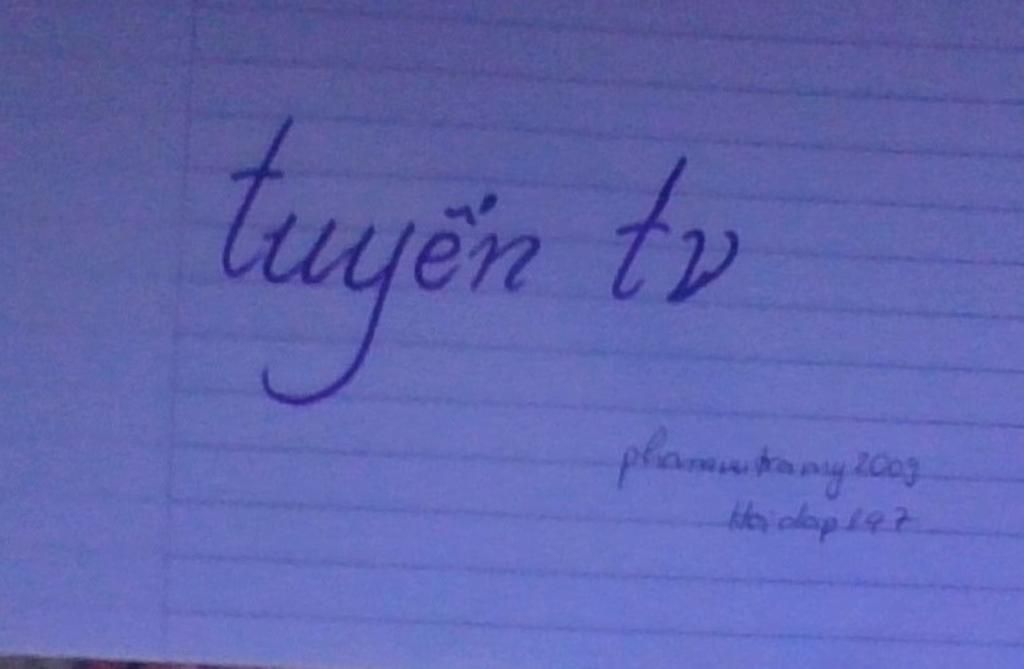 tuyến tv
phamvutramy2009
Hoidap247